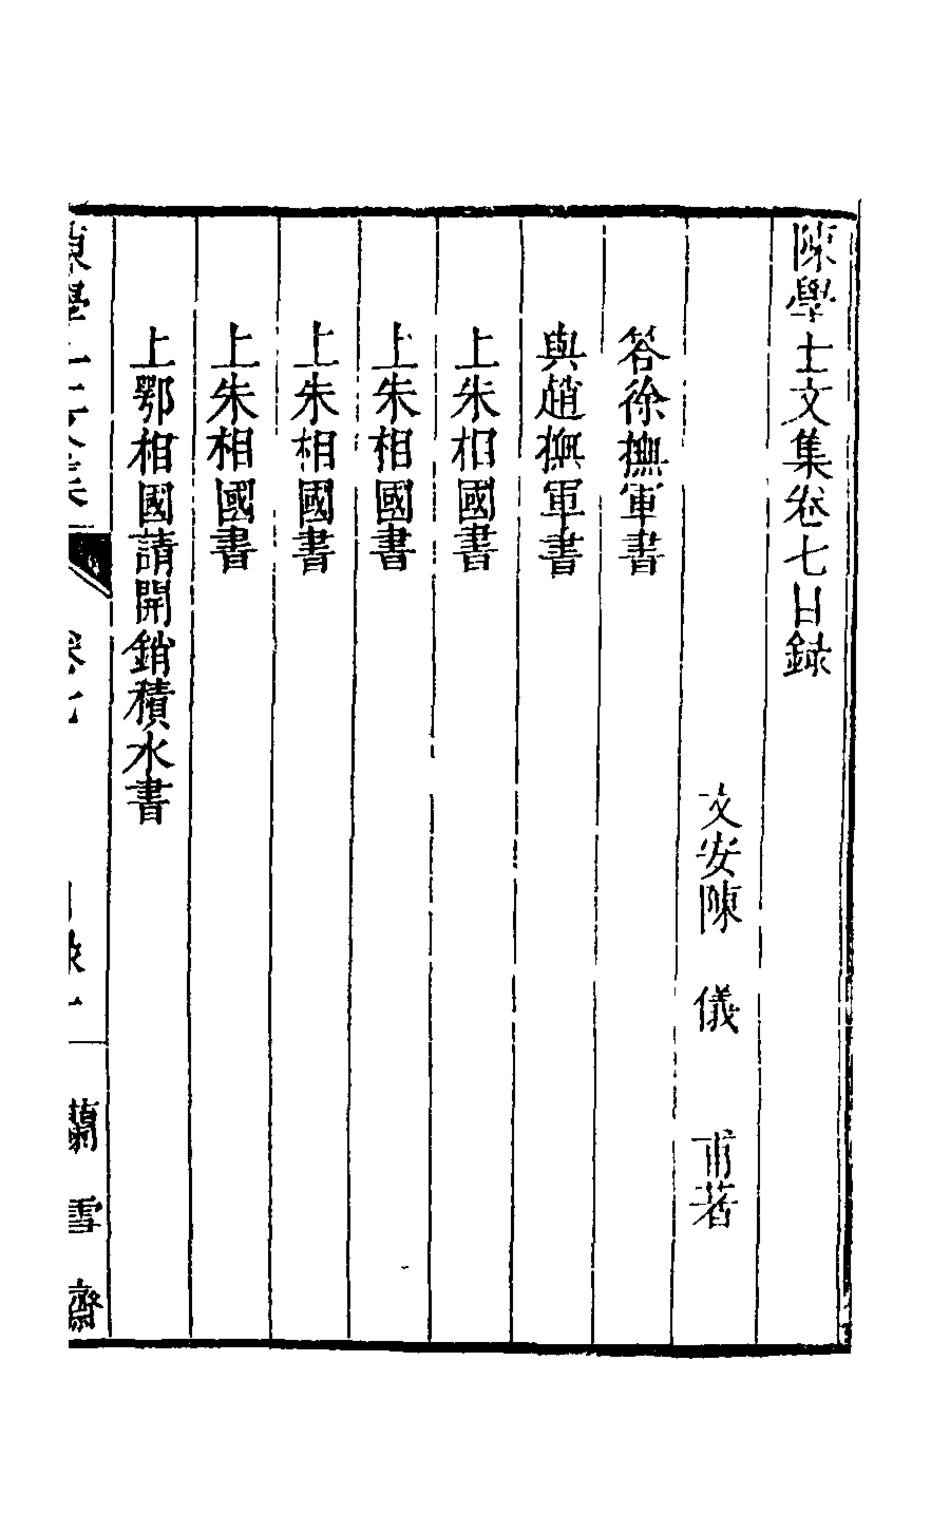 陳學士文集卷七目録
文安陳儀甫著
答徐撫軍書
與趙撫軍書
上朱相國書
上朱相國書
上朱相國書
上朱相國書
上鄂相國請開銷積水書
陳學士文集 卷七 目録一 蘭雪齋